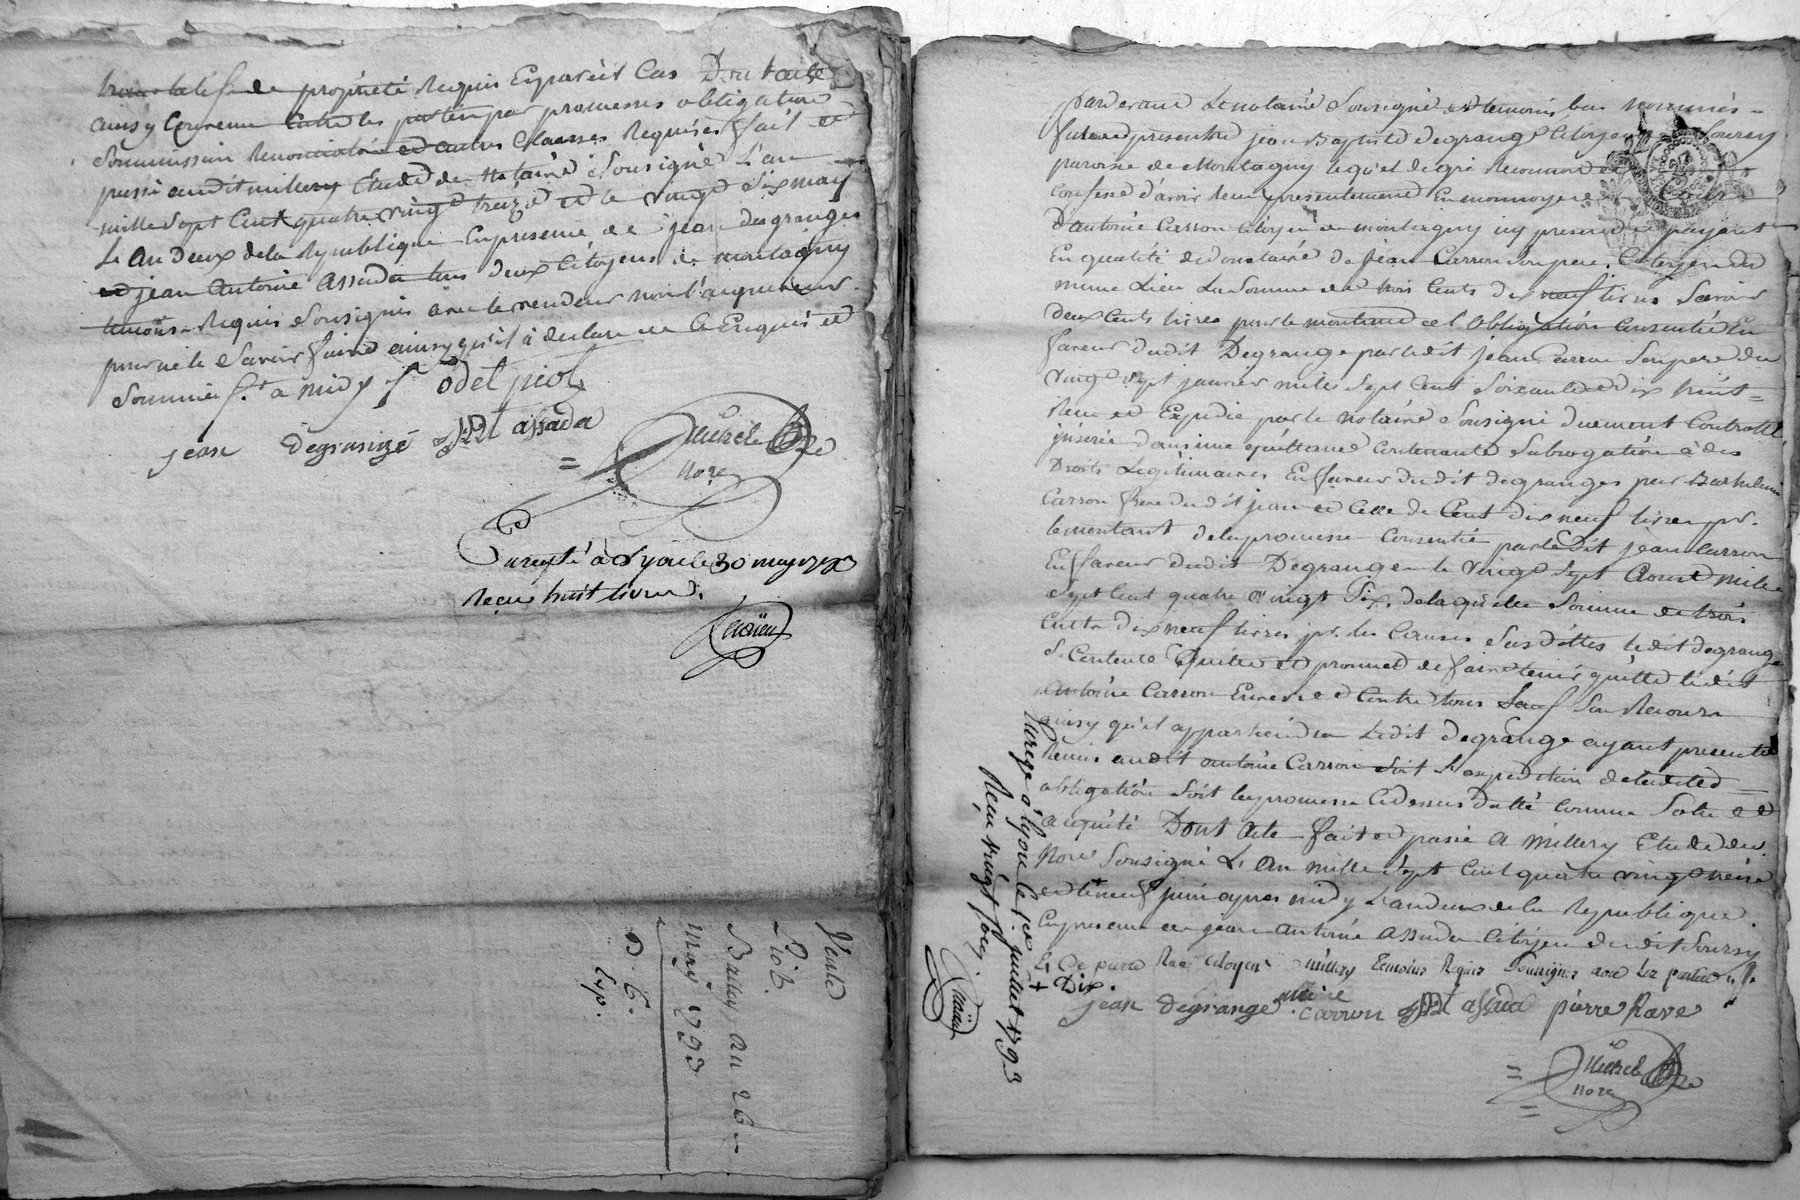 translatif de propriété Requis En pareil Cas Dont acte
ainsy Convenu Entre les parties par promesses obligations
Soummission Renonciation et autres Clauses Requises fait et
passé audit millery Etude du Notaire Soussigné L'an
mille Sept Cent quatre vingt treize et le vingt Six may
L'an deux de la Republique En presence de jean degranges
et jean Antoine Assada tous deux Citoyens de montagny
temoins Requis Soussignés avec le vendeur non l'acquereur
pour ne le Savoir faire ainsy qu'il à declaré de ce Enquis et
Sommé a midy
jean degrange assada
Michel
Nore
Enregté à Lyon le 30 may 1793
Reçu huit livres.
Vente
Piot
Bailly, du 26
may 1793
Exp.
pardevant Le notaire Soussigné et temoins bas nommés
fut present jean Baptiste degrange Citoyen Sourzy
paroisse de Montagny lequel de gré Reconnoit et
confesse d'avoir Reçu presentement En monnoye de
D'antoine Carron Citoyen de montagny icy present et payant
En qualité de donataire de jean Carron Son pere, Citoyen du
meme Lieu La Somme de trois Cents dix neuf livres Savoir
deux Cents livres pour le montant de l'obligation Consentie En
faveur dudit Degrange par ledit jean Carron Son pere du
vingt Sept janvier mille Sept Cent Soixante et dix huit
Reçu et Expedié par le Notaire Soussigné duement Controllé
jnserée dans une quittance Contenante Subrogation à des
Droits Legitimaires En faveur dudit degranges par Barthelemi
Carron frere dudit jean et Celle de Cent dix neuf livres pr.
le montant de la promesse Consentie par ledit jean Carron
En faveur dudit Degrange le vingt Sept Aoust mille
Sept Cent quatre vingt Six, de laquelle Somme de trois
Cents dix neuf livres pr. les Causes Susdittes ledit degrange
Se Contente Quitte et promet de faire tenir quitte ledit
Antoine Carron Envers et Contre tous Sauf Son Recours
ainsy qu'il appartiendra Ledit degrange ayant presentement
Remis audit antoine Carron Soit L'expedition de ladite
obligation Soit la promesse Cidessus datté Comme Solu et
acquité Dont Acte fait et passé A millery Etude du
Nore Soussigné L'An mille Sept Cent quatre vingt treize
et le neuf juin apres midy L'an deux de la Republique
En presence de jean Antoine Assada Citoyen dudit Sourzy
Et De pierre Rave citoyen millery Temoins Requis Soussignés avec les parties
Dix.
jean degrange antoine carron assada pierre Rave
Michel
Nore
Enregé à Lyon le 1er juillet 1793
Reçu vingt Sols